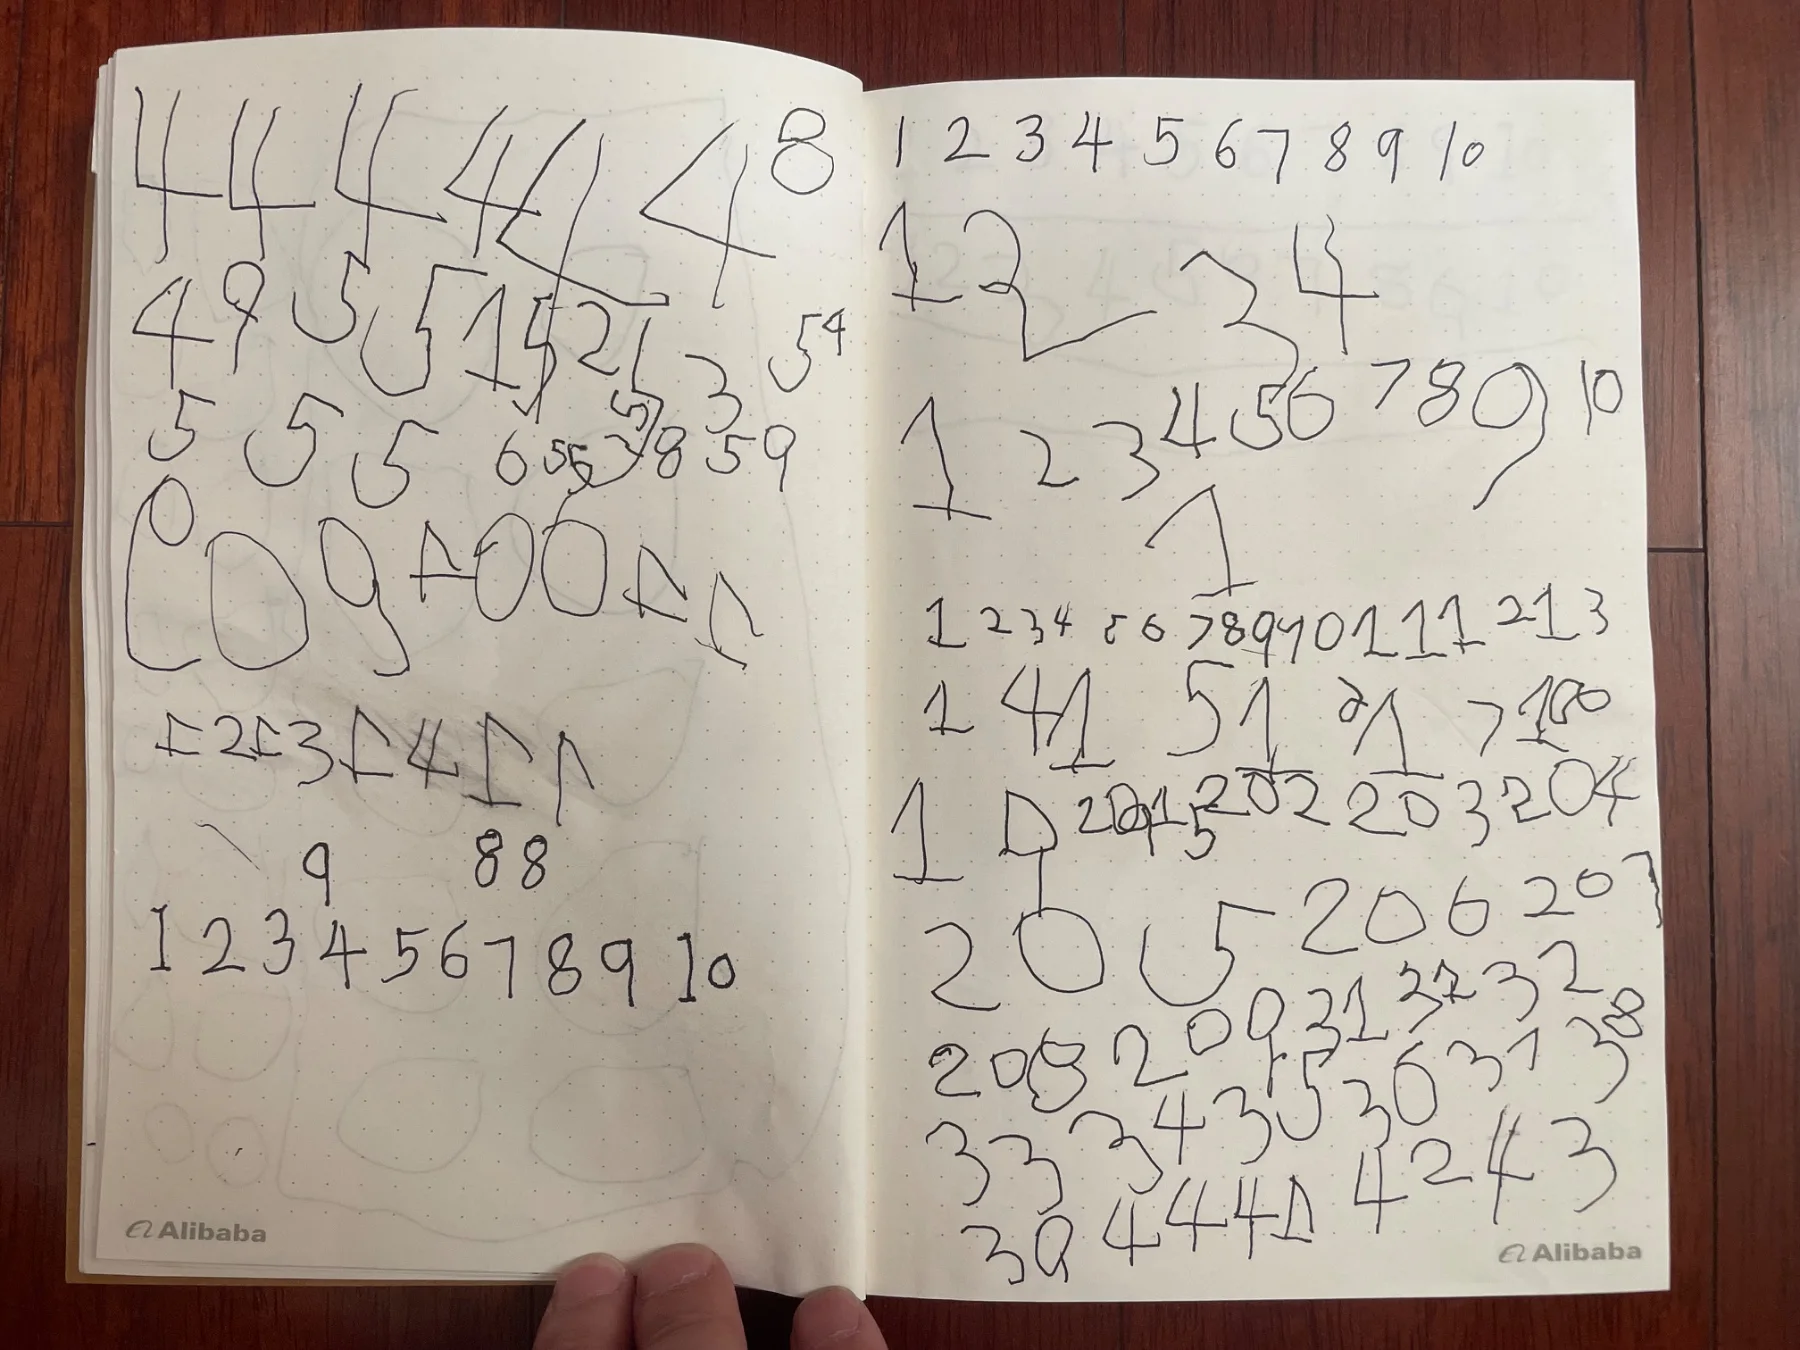 4 4 4 4 4 4 8
4 9 5 5 1 5 2 5 3 5 4
5 5 5 6 5 6 3 8 5 9
0 9 1 0 0 1 1
1 2 1 3 1 4 1 1
9 8 8
1 2 3 4 5 6 7 8 9 10
Alibaba
1 2 3 4 5 6 7 8 9 10
1 2 3 4
1 2 3 4 5 6 7 8 9 10
1
1 2 3 4 5 6 7 8 9 1 0 1 1 1 2 1 3
1 4 1 5 1 1 7 1
1 9 202 203 204
205 206 207
208 209 31 32
33 34 35 36 37 38
39 4 4 41 42 43
Alibaba